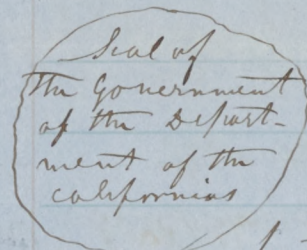 Seal of
the Government
of the Depart-
ment of the
Californias